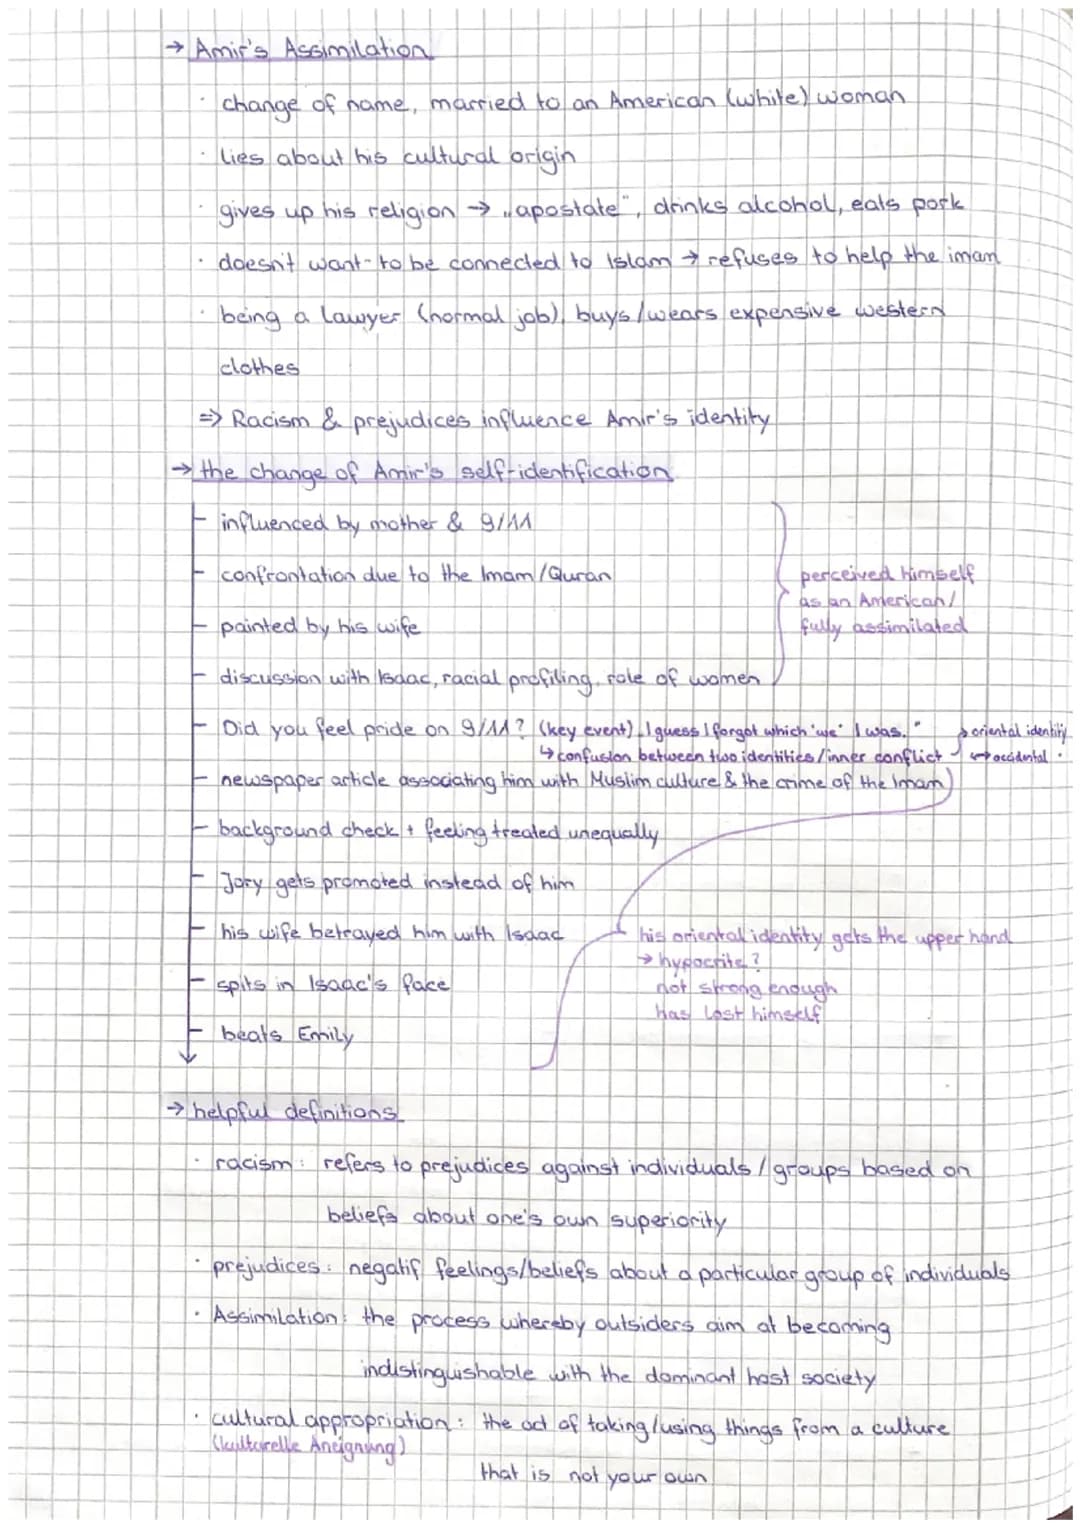 → Amir's Assimilation
· change of name, married to an American (white) woman
· lies about his cultural origin
· gives up his religion → „apostate", drinks alcohol, eats pork
· doesn't want to be connected to Islam → refuses to help the imam
· being a lawyer (normal job), buys/wears expensive western
clothes
=> Racism & prejudices influence Amir's identity
→ the change of Amir's self-identification
- influenced by mother & 9/11
- confrontation due to the Imam/Quran
perceived himself
as an American/
fully assimilated
- painted by his wife
- discussion with Isaac, racial profiling, role of women
- Did you feel pride on 9/11? (key event) „I guess I forgot which 'we' I was."
↳ confusion between two identities/inner conflict
→ oriental identity
↔ occidental "
- newspaper article associating him with Muslim culture & the crime of the Imam
- background check + feeling treated unequally
- Jory gets promoted instead of him
- his wife betrayed him with Isaac
his oriental identity gets the upper hand
→ hypocrite?
not strong enough
has lost himself
- spits in Isaac's face
- beats Emily
→ helpful definitions
· racism: refers to prejudices against individuals/groups based on
beliefs about one's own superiority
· prejudices: negatif feelings/beliefs about a particular group of individuals
· Assimilation: the process whereby outsiders aim at becoming
indistinguishable with the dominant host society
· cultural appropriation: the act of taking/using things from a culture
(kulturelle Aneignung)
that is not your own